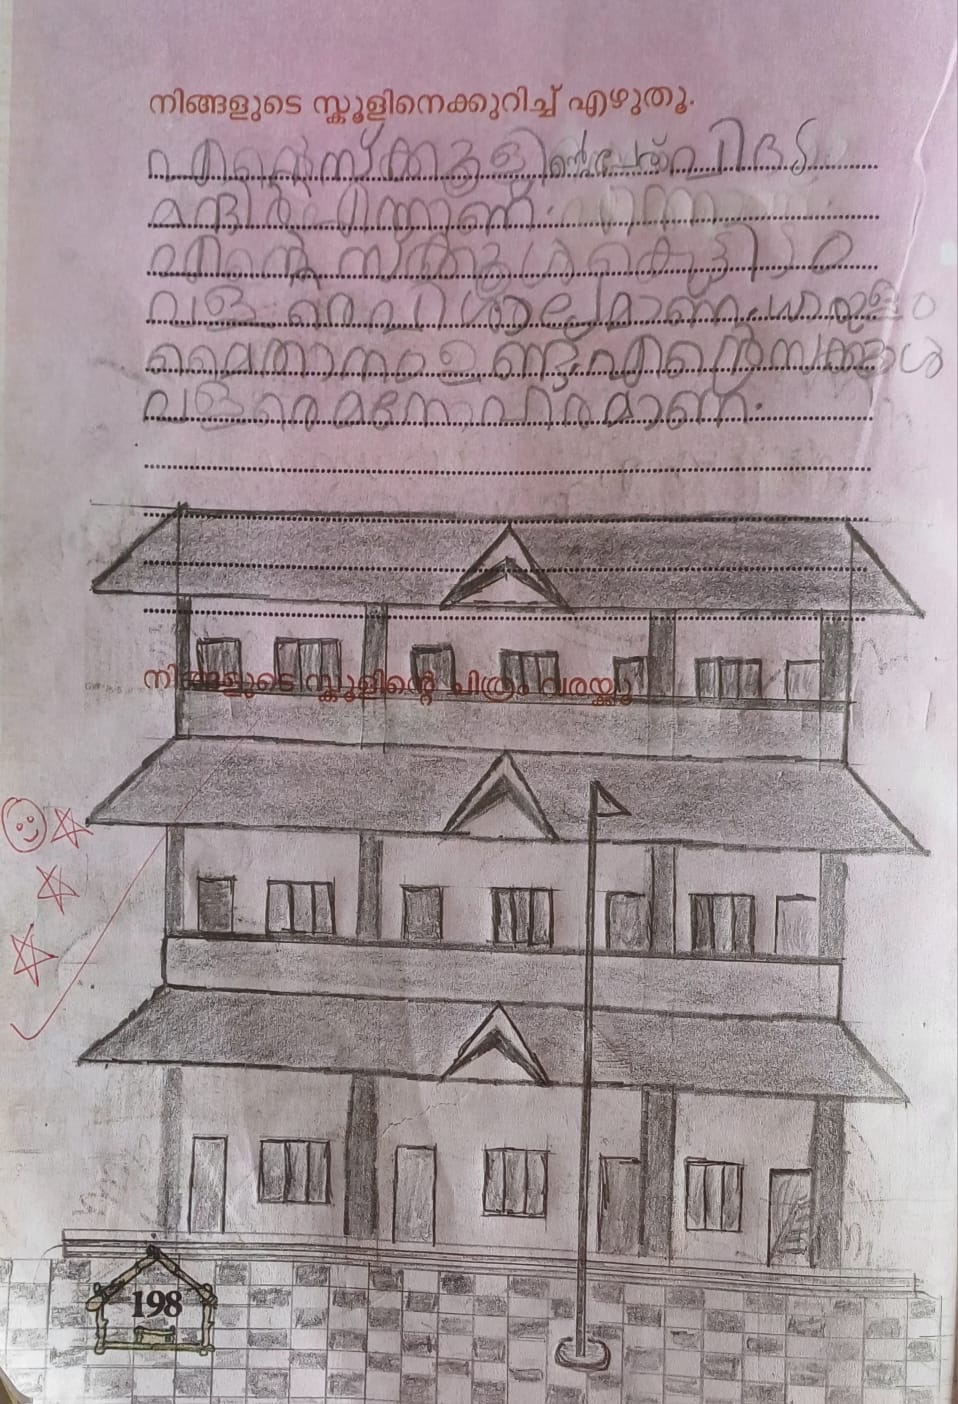 നിങ്ങളുടെ സ്കൂളിനെക്കുറിച്ച് എഴുതൂ.
എന്റെ സ്ക്കൂളിന്റെ പേര്
മന്ദിർ എന്നാണ്.
എന്റെ
വളരെ വിശാലമാണ്. ധാരാളം
മൈതാനം ഉണ്ട്. എന്റെ സ്ക്കൂൾ
വളരെ മനോഹരമാണ്.
നിങ്ങളുടെ സ്കൂളിന്റെ ചിത്രം വരയ്ക്കൂ
198